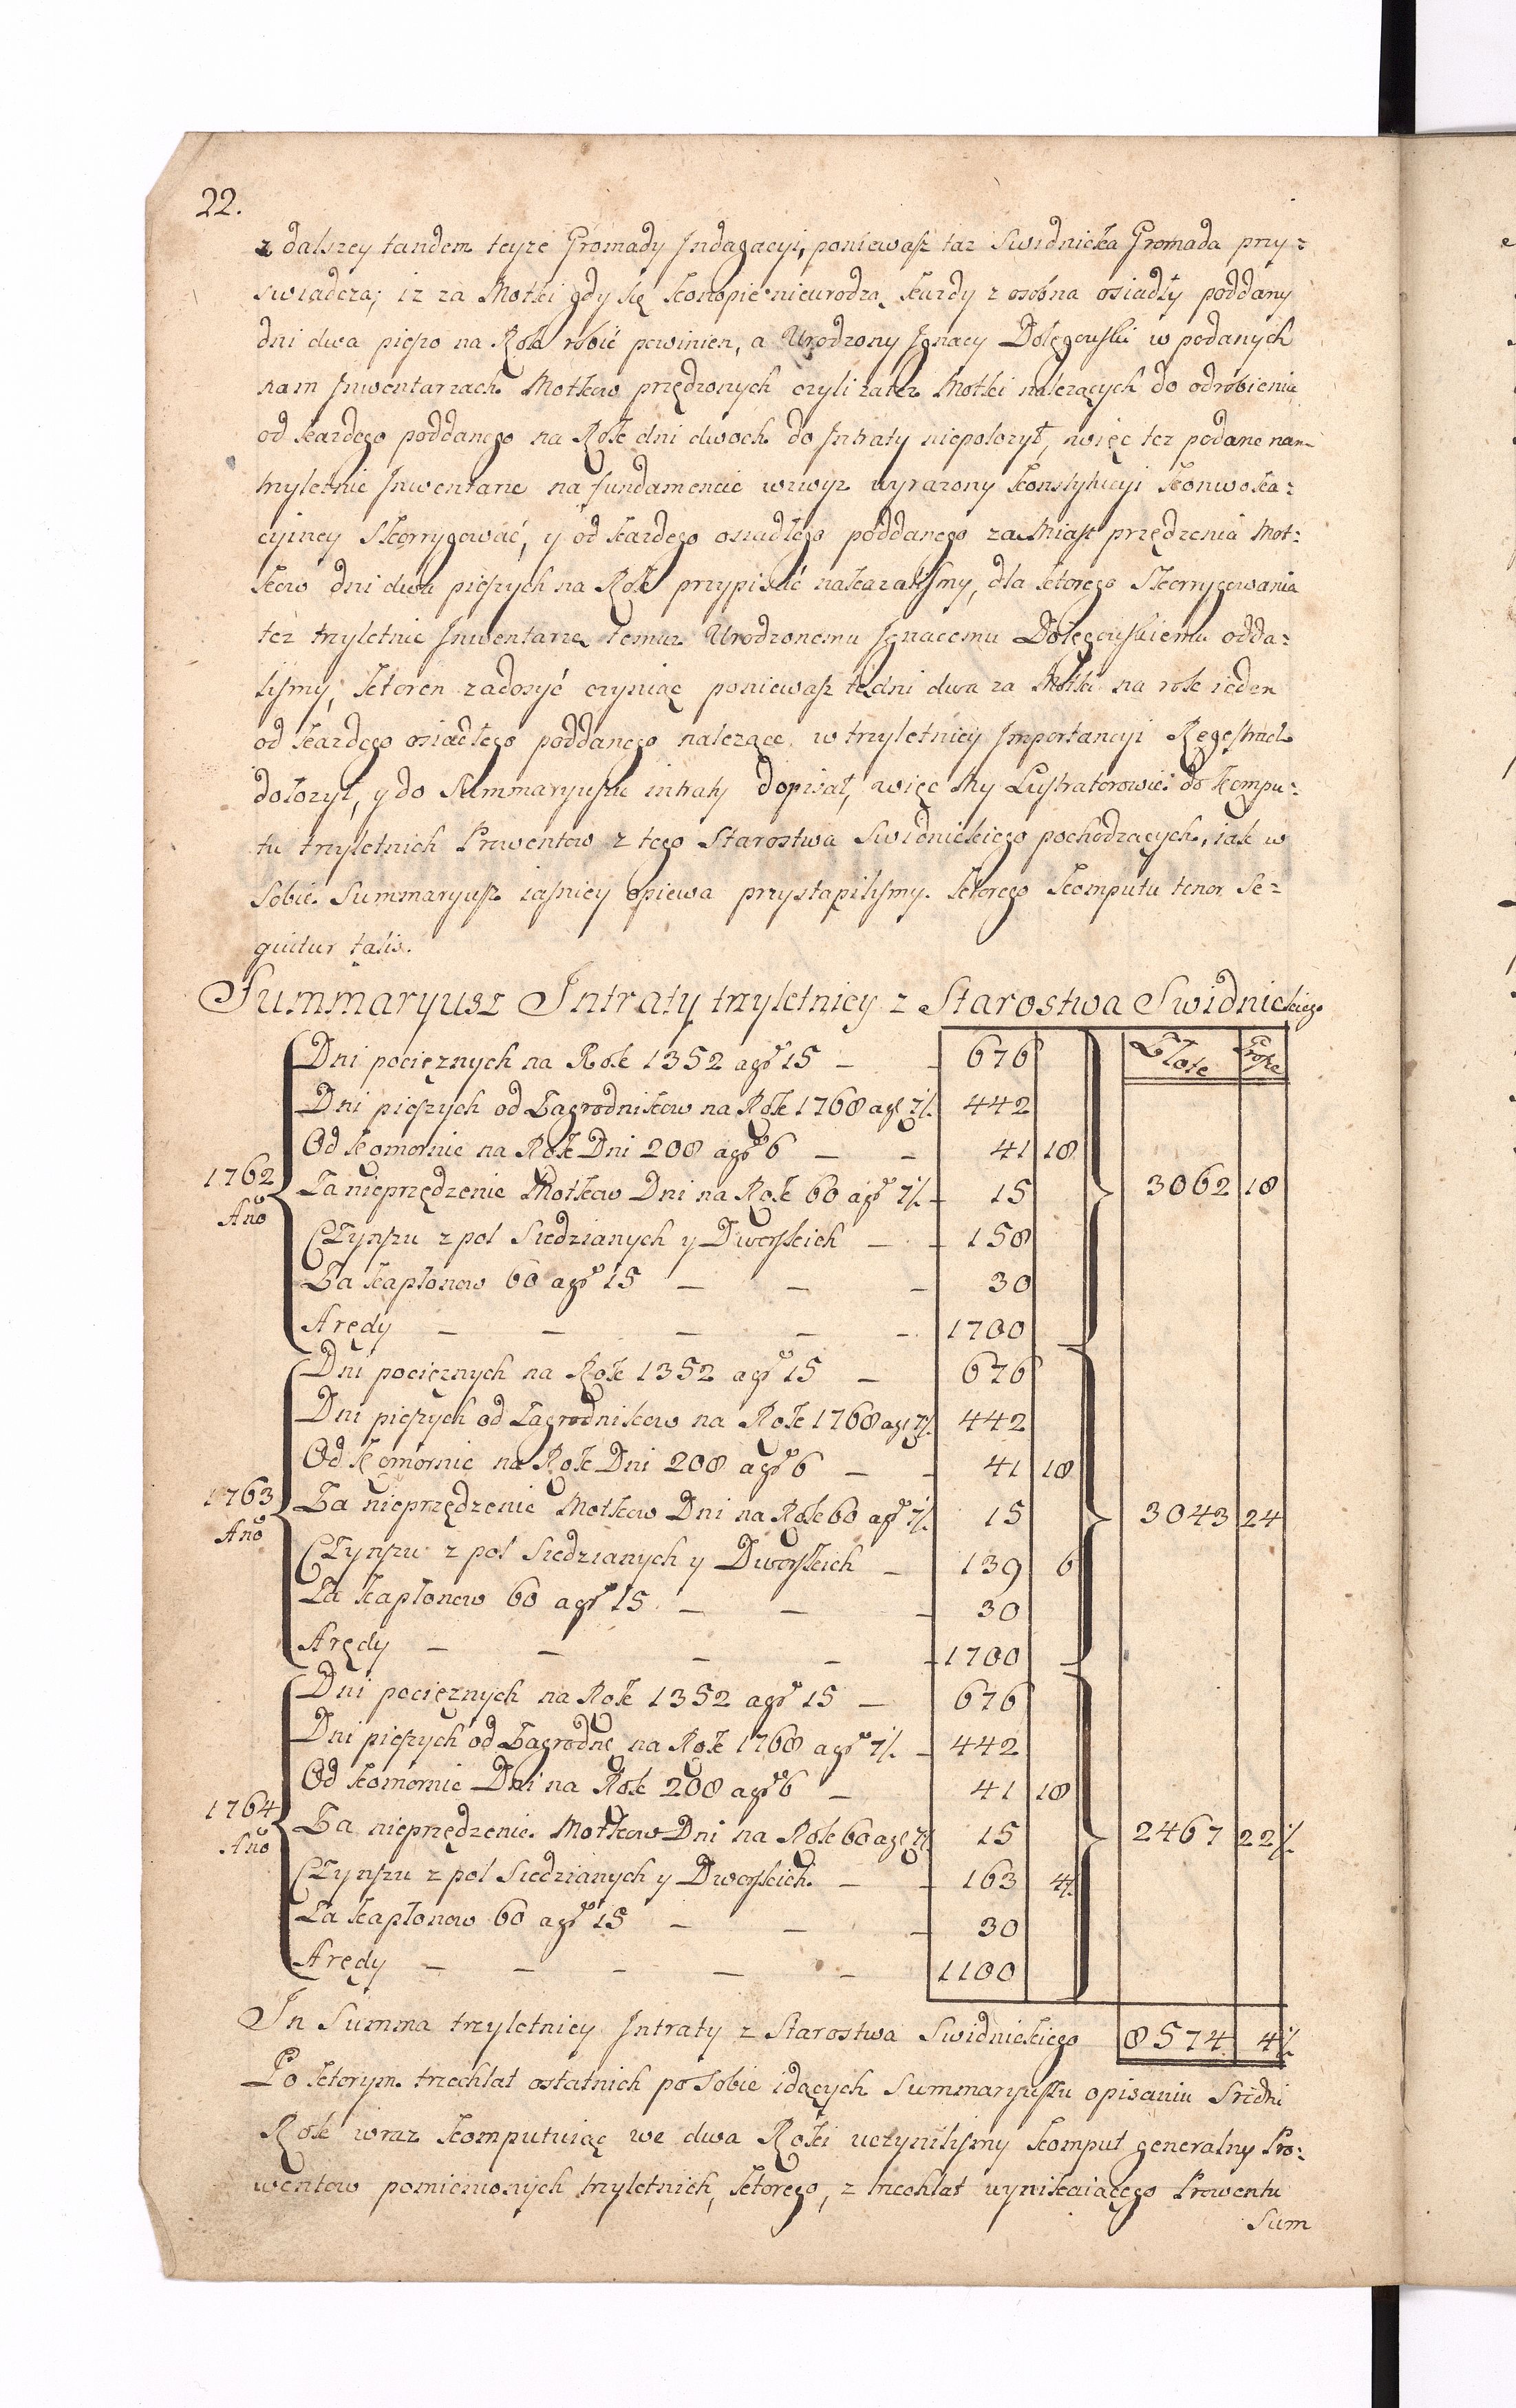 22.
z dalszey tandem teyże Gromady Indagacyi, poniewasz taż Swidnicka Gromada przy=
swiadcza; iż za Motki gdy się Konopie nieurodzą każdy z osobna osiadły poddany
dni dwa pieszo na Rok robić powinien, a Urodzony Ignacy Dolęgowski w podanych
nam Inwentarzach Motkow przędzonych czyli za też Motki należących do odrobienia
od każdego poddanego na Rok dni dwoch do Intraty niepołożył, więc też podane nam
trzyletnie Inwentarze na fundamencie wzwyż wyrażony Konstytucyi Konwoka=
cyiney Skorrygować, y od każdego osiadłego poddanego zamiast przędzenia Mot=
kow dni dwa pieszych na Rok przypisać nakazalismy, dla ktorego Skorrygowania
też trzyletnie Inwentarze temuż Urodzonemu Ignacemu Dolęgowskiemu odda=
lismy, ktoren zadosyć czyniąc poniewasz te dni dwa za Motki na rok ieden
od każdego osiadłego poddanego należące w trzyletniey Importancyi Regestrach
dołożył, y do Summaryuszu intraty dopisał, więc My Lustratorowie do kompu=
tu trzyletnich Prowentow z tego Starostwa Swidnickiego pochodzących, iak w
sobie Summaryusz iasniey opiewa przystąpilismy. Ktorego Komputu tenor Se=
quitur talis.
Summaryusz Intraty trzyletniey z Starostwa Swidnickiego
Złote Grosze
Dni pociężnych na Rok 1352 a gr 15 — 676
Dni pieszych od Zagrodnikow na Rok 1768 a gr 7½ 442
Od Komornic na Rok Dni 208 a gr 6 — — 41 18
1762 Za nieprzędzenie Motkow Dni na Rok 60 a gr 7½ — 15 3062 18
Año
Czynszu z pol Siedzianych y Dworskich — — 158
Za kapłonow 60 a gr 15 — — — 30
Arędy — — — — — 1700
Dni pociężnych na Rok 1352 a gr 15 — 676
Dni pieszych od Zagrodnikow na Rok 1768 a gr 7½ 442
Od Komornic na Rok Dni 208 a gr 6 — — 41 18
1763 Za nieprzędzenie Motkow Dni na Rok 60 a gr 7½ 15 3043 24
Año
Czynszu z pol Siedzianych y Dworskich — 139 6
Za kapłonow 60 a gr 15 — — — 30
Arędy — — — — — 1700
Dni pociężnych na Rok 1352 a gr 15 — 676
Dni pieszych od Zagrodnę na Rok 1768 a gr 7½ — 442
Od Komornic Dni na Rok 208 a gr 6 — 41 18
1764 Za nieprzędzenie Motkow Dni na Rok 60 a gr 7½ 15 2467 22½
Año
Czynszu z pol Siedzianych y Dworskich — — 163 4½
Za kapłonow 60 a gr 15 — — — 30
Arędy — — — — — 1100
In Summa trzyletniey Intraty z Starostwa Swidnickiego 8574 4½
Po ktorym trzechlat ostatnich po sobie idących Summaryuszu opisaniu Sredni
Rok wraz komputuiąc we dwa Roki uczynilismy komput generalny Pro=
wentow pomienionych trzyletnich, ktorego, z trzechlat wynikaiącego Prowentu
Sum